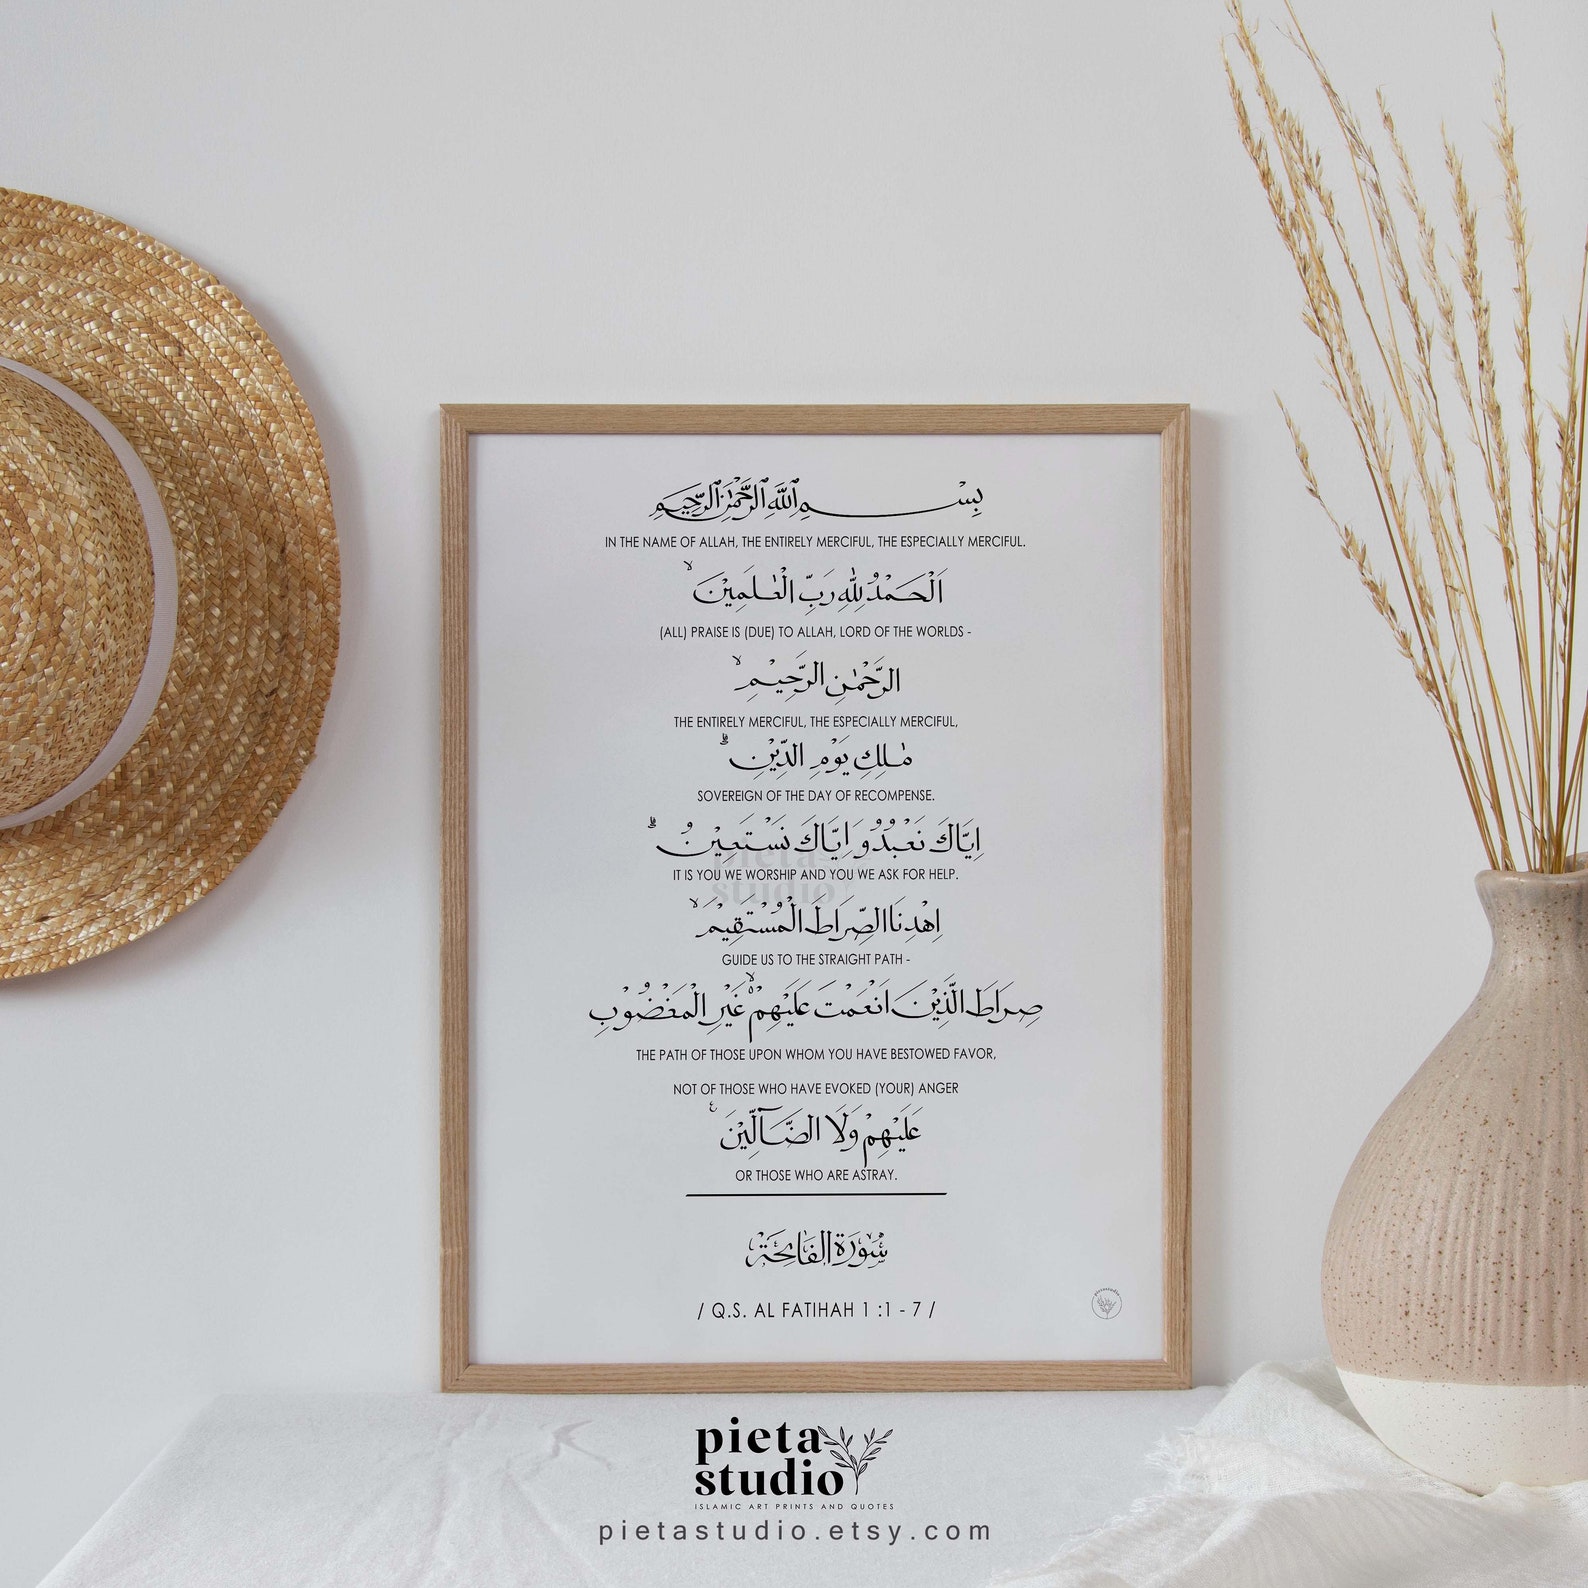 بِسْمِ ٱللَّهِ ٱلرَّحْمَٰنِ ٱلرَّحِيمِ
IN THE NAME OF ALLAH, THE ENTIRELY MERCIFUL, THE ESPECIALLY MERCIFUL.
اَلْحَمْدُ لِلّٰهِ رَبِّ الْعٰلَمِيْنَۙ
(ALL) PRAISE IS (DUE) TO ALLAH, LORD OF THE WORLDS -
الرَّحْمٰنِ الرَّحِيْمِۙ
THE ENTIRELY MERCIFUL, THE ESPECIALLY MERCIFUL,
مٰلِكِ يَوْمِ الدِّيْنِۗ
SOVEREIGN OF THE DAY OF RECOMPENSE.
اِيَّاكَ نَعْبُدُ وَاِيَّاكَ نَسْتَعِيْنُۗ
IT IS YOU WE WORSHIP AND YOU WE ASK FOR HELP.
اِهْدِنَا الصِّرَاطَ الْمُسْتَقِيْمَۙ
GUIDE US TO THE STRAIGHT PATH -
صِرَاطَ الَّذِيْنَ اَنْعَمْتَ عَلَيْهِمْۙ غَيْرِ الْمَغْضُوْبِ
THE PATH OF THOSE UPON WHOM YOU HAVE BESTOWED FAVOR,
NOT OF THOSE WHO HAVE EVOKED (YOUR) ANGER
عَلَيْهِمْ وَلَا الضَّاۤلِّيْنَ
OR THOSE WHO ARE ASTRAY.
سُوْرَةُ الفَاتِحَةِ
/ Q.S. AL FATIHAH 1 :1 - 7 /
pietastudio
pieta
studio
pieta
studio
ISLAMIC ART PRINTS AND QUOTES
pietastudio.etsy.com